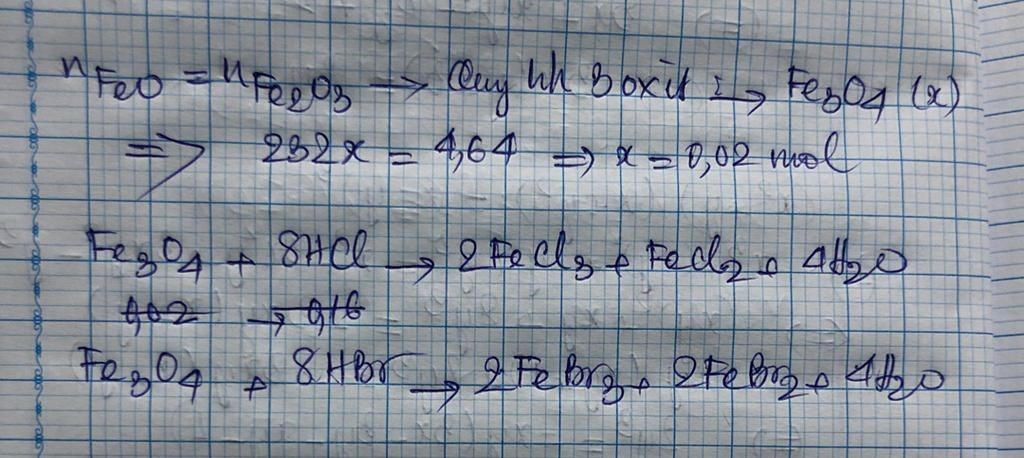 nFeO = nFe2O3 → Quy hh 3 oxit : → Fe3O4 (x)
⇒ 232x = 4,64 ⇒ x = 0,02 mol
Fe3O4 + 8HCl → 2FeCl3 + FeCl2 + 4H2O
0,02 → 0,16
Fe3O4 + 8HBr → 2FeBr3 + 2FeBr2 + 4H2O